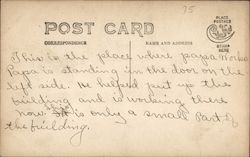 75
POST CARD
CORRESPONDENCE
NAME AND ADDRESS
PLACE
POSTAGE
STAMP
HERE
This is the place where papa works
Papa is standing in the door on the
left side. He helped put up the
building and is working there
now. is only a small Part of
the building.